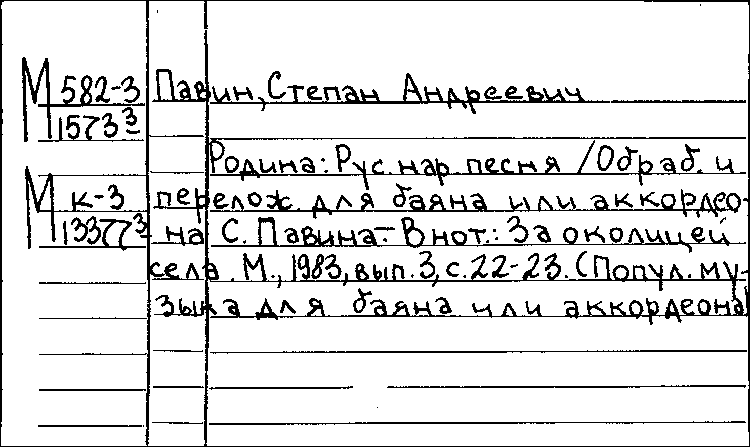 М 582-3 Павин, Степан Андреевич
1573 3
Родина: Рус. нар. песня / Обраб. и
М к-3 перелож. для баяна или аккордео-
13377 3 на С. Павина.- В нот.: За околицей
села. М., 1983, вып. 3, с. 22-23. (Попул. му-
зыка для баяна или аккордеона)